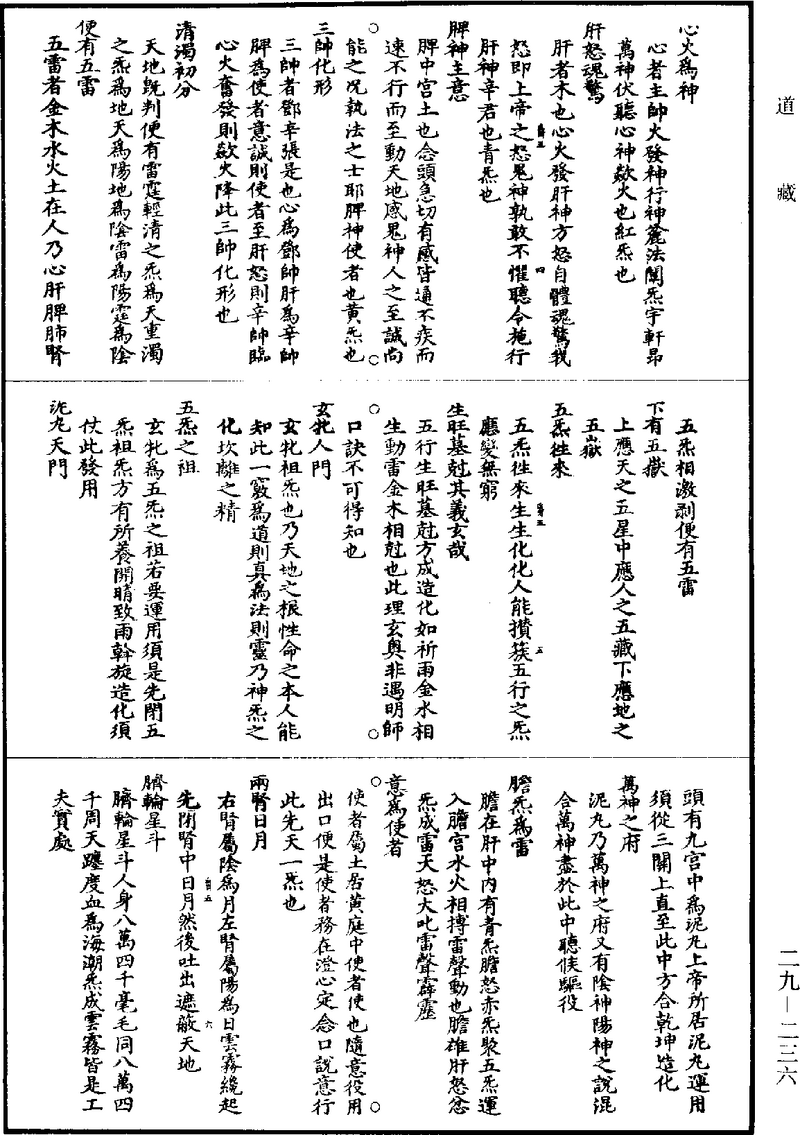 道藏
心火為神
心者主帥火發神行神麄法闡炁宇軒昂
萬神伏聽心神歘火也紅炁也
肝怒魂驚
肝者木也心火發肝神方怒自體魂驚我
怨即上帝之怨鬼神孰敢不懼聽令施行
肝神辛君也青炁也
脾神主意
脾中宮土也念頭急切有感皆通不疾而
速不行而至動天地感鬼神人之至誠尚
能之况執法之士耶脾神使者也黃炁也
三帥化形
三帥者鄧辛張是也心為鄧帥肝為辛帥
脾為使者意誠則使者至肝怒則辛帥臨
心火奮發則歘火降此三帥化形也
清濁初分
天地旣判便有雷霆輕清之炁為天重濁
之炁為地天為陽地為陰雷為陽霆為陰
便有五雷
五雷者金木水火土在人乃心肝脾肺腎
五炁相激剥便有五雷
下有五嶽
上應天之五星中應人之五藏下應地之
五嶽
五炁往來
五炁往來生生化化人能攢簇五行之炁
應變無窮
生旺墓尅其義玄哉
五行生旺墓尅方成造化如祈雨金水相
生動雷金木相尅也此理玄奧非遇明師
口訣不可得知也
玄牝人門
玄牝祖炁也乃天地之根性命之本人能
知此一竅為道則真為法則靈乃神炁之
化坎離之精
五炁之祖
玄牝為五炁之祖若要運用須是先閉五
炁祖炁方有所養開晴致雨斡旋造化須
仗此發用
泥丸天門
頭有九宮中為泥丸上帝所居泥丸運用
須從三關上直至此中方合乾坤造化
萬神之府
泥丸乃萬神之府又有陰神陽神之說混
合萬神盡於此中聽候驅役
膽炁為雷
膽在肝中內有青炁膽怒赤炁聚五炁運
入膽宮水火相搏雷聲動也膽雄肝怒忿
炁成雷天怒大叱雷聲霹靂
意為使者
使者屬土居黃庭中使者使也隨意役用
出口便是使者務在澄心定念口說意行
此先天一炁也
兩腎日月
右腎屬陰為月左腎屬陽為日雲霧纔起
先閉腎中日月然後吐出遮蔽天地
臍輪星斗
臍輪星斗人身八萬四千毫毛同八萬四
千周天躔度血為海潮炁成雲霧皆是工
夫實處
二九—二三六